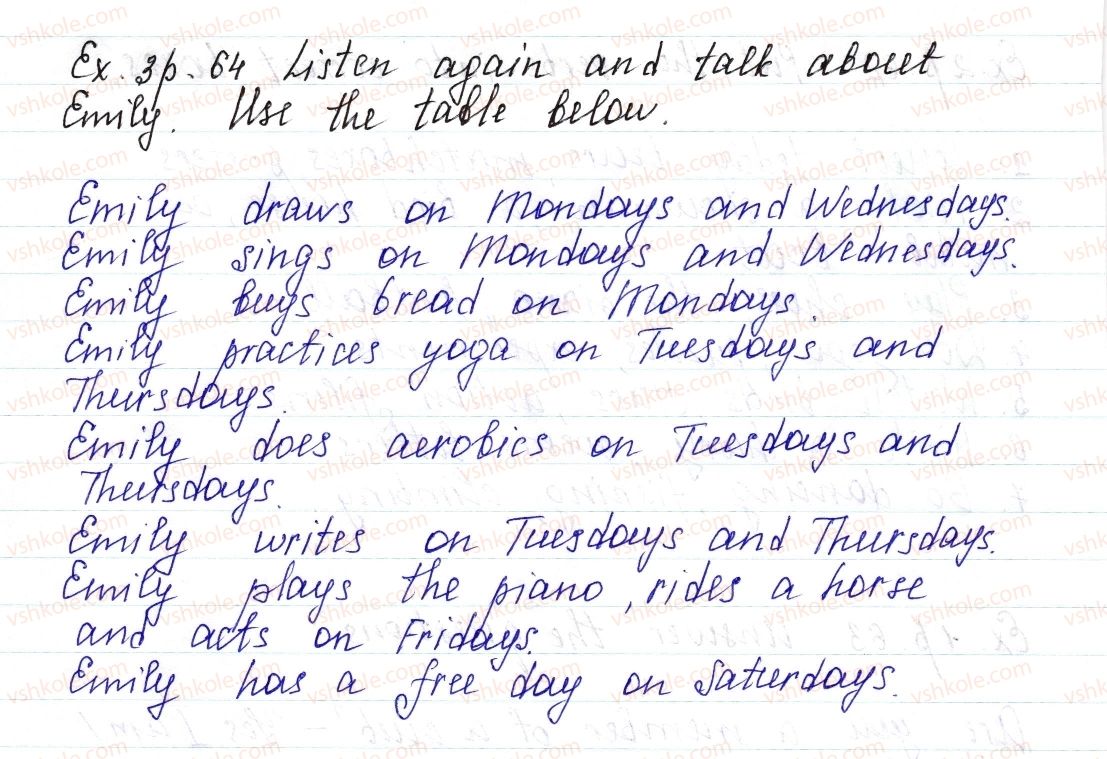 Ex. 3p. 64 Listen again and talk about
Emily. Use the table below.
Emily draws on Mondays and Wednesdays.
Emily sings on Mondays and Wednesdays.
Emily buys bread on Mondays.
Emily practices yoga on Tuesdays and
Thursdays.
Emily does aerobics on Tuesdays and
Thursdays.
Emily writes on Tuesdays and Thursdays.
Emily plays the piano, rides a horse
and acts on Fridays.
Emily has a free day on Saturdays.
vshkole.com